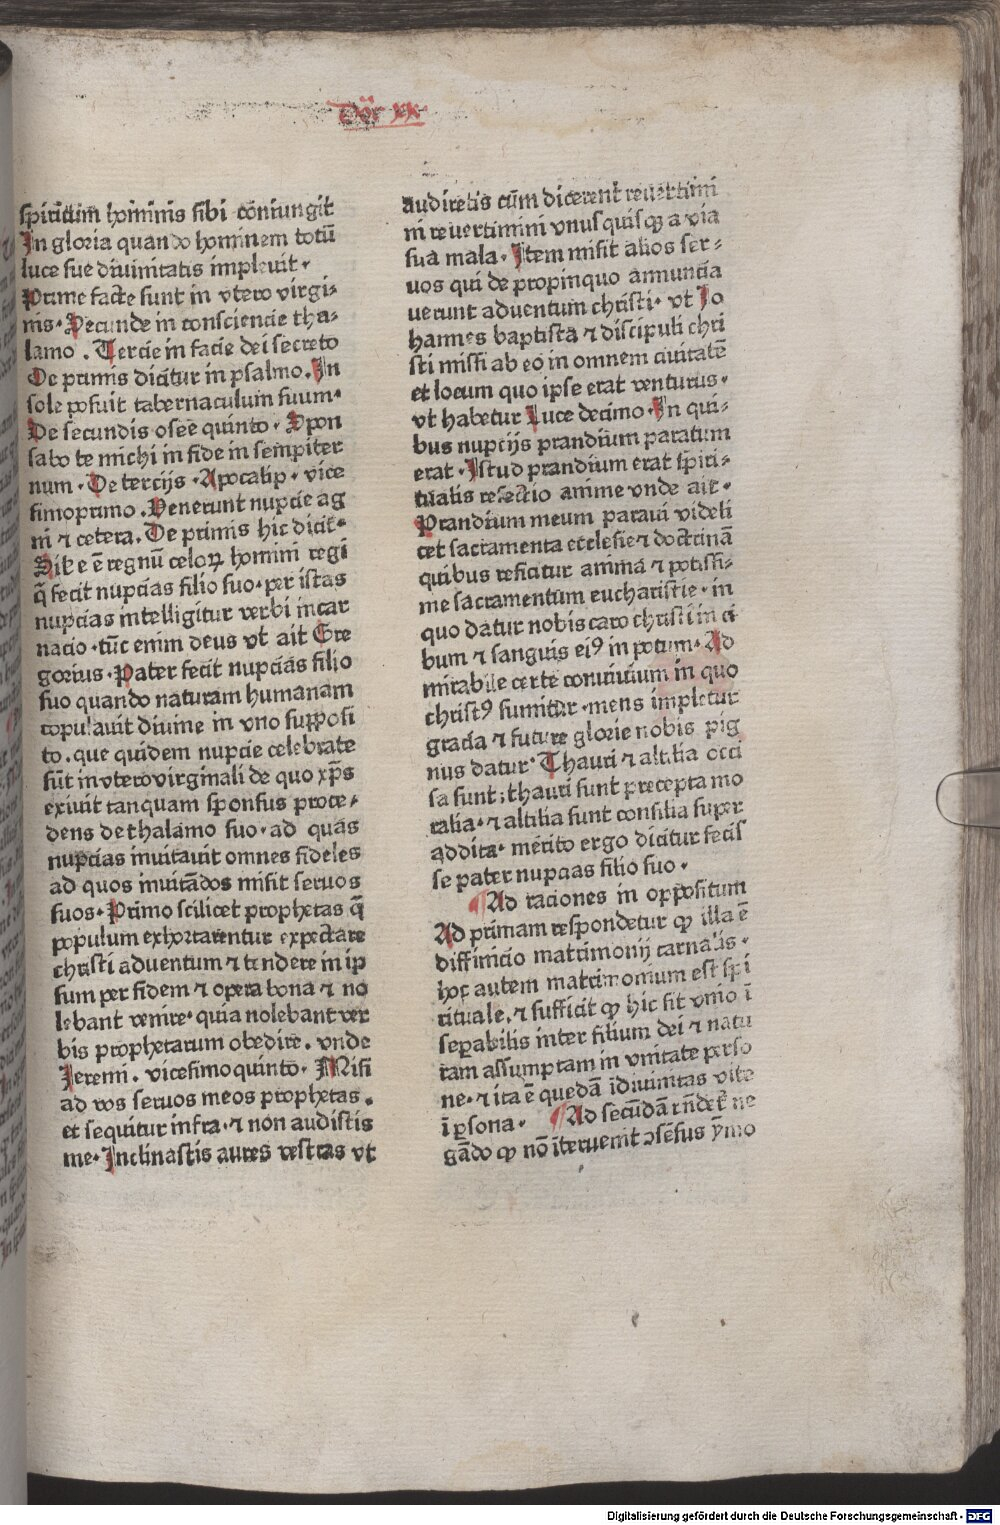 Dōr xx
spiritum hominis sibi coniungit
In gloria quando hominem totū
luce sue diuinitatis impleuit.
Prime facte sunt in vtero virgi-
nis. Secunde in consciencie tha-
lamo. Tercie in facie dei secreto
De primis dicitur in psalmo. In
sole posuit tabernaculum suum.
De secundis osee quinto. Spon
sabo te michi in fide in sempiter
num. De tercijs. Apocalip. vice
simoprimo. Venerunt nupcie ag
ni ⁊ cetera. De primis hic dicit.
Sil'e ē regnū celoꝝ homini regi
q̄ fecit nupcias filio suo. per istas
nupcias intelligitur verbi incar
nacio. tūc enim deus vt ait Gre
gorius. Pater fecit nupcias filio
suo quando naturam humanam
copulauit diuine in vno supposi
to. que quidem nupcie celebrate
sūt in vtero virginali de quo xp̄s
exiuit tanquam sponsus proce-
dens de thalamo suo. ad quas
nupcias inuitauit omnes fideles
ad quos inuitādos misit seruos
suos. Primo scilicet prophetas q̄
populum exhortarentur expectare
christi aduentum ⁊ tendere in ip
sum per fidem ⁊ opera bona ⁊ no
lebant venire. quia nolebant ver
bis prophetarum obedire. vnde
Jeremi. vicesimoquinto. Misi
ad vos seruos meos prophetas.
et sequitur infra. ⁊ non audistis
me. Inclinastis aures vestras vt
audiretis cūm dicerent reuertimi
ni reuertimini vnusquisqꝫ a via
sua mala. Item misit alios ser-
uos qui de propinquo annuncia
uerunt aduentum christi. vt Jo
hannes baptista ⁊ discipuli chri
sti missi ab eo in omnem ciuitatē
et locum quo ipse erat venturus.
vt habetur Luce decimo. In qui-
bus nupcijs prandium paratum
erat. Istud prandium erat spiri-
tualis refectio anime vnde ait.
Prandium meum paraui videli
cet sacramenta ecclesie ⁊ doctrinā
quibus reficitur animā ⁊ potissi-
me sacramentum eucharistie. in
quo datur nobis caro christi in ci
bum ⁊ sanguis eiꝰ in potum. Ad
mirabile certe conuiuium in quo
christꝰ sumitur. mens impletur
gracia ⁊ future glorie nobis pig
nus datur. Thauri ⁊ altilia occi
sa sunt; thauri sunt precepta mo
ralia. ⁊ altilia sunt consilia super
addita. merito ergo dicitur fecis
se pater nupcias filio suo.
¶ Ad raciones in oppositum
Ad primam respondetur qꝫ illa ē
diffinicio matrimonij carnalis.
hoc autem matrimonium est spi
rituale. ⁊ sufficit qꝫ hic sit vnio ī
seꝑabilis inter filium dei ⁊ natu
ram assumptam in vnitate perso
ne. ⁊ ita ē quedā īdiuinitas vite
ī ꝑsona. ¶ Ad secūdā rn̄det' ne
gādo qꝫ nō īteruenit ↄsēsus ȳmo
Digitalisierung gefördert durch die Deutsche Forschungsgemeinschaft - DFG